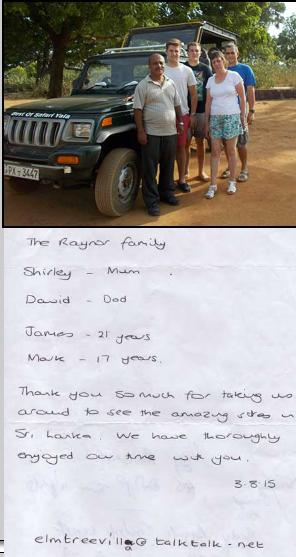 Best Of Safari Yala
PX-3447
The Raynor family
Shirley - Mum
David - Dad
James - 21 years
Mark - 17 years.
Thank you so much for taking us
around to see the amazing sites in
Sri Lanka. We have thoroughly
enjoyed our time with you.
3.8.15
elmtreevilla@talktalk.net